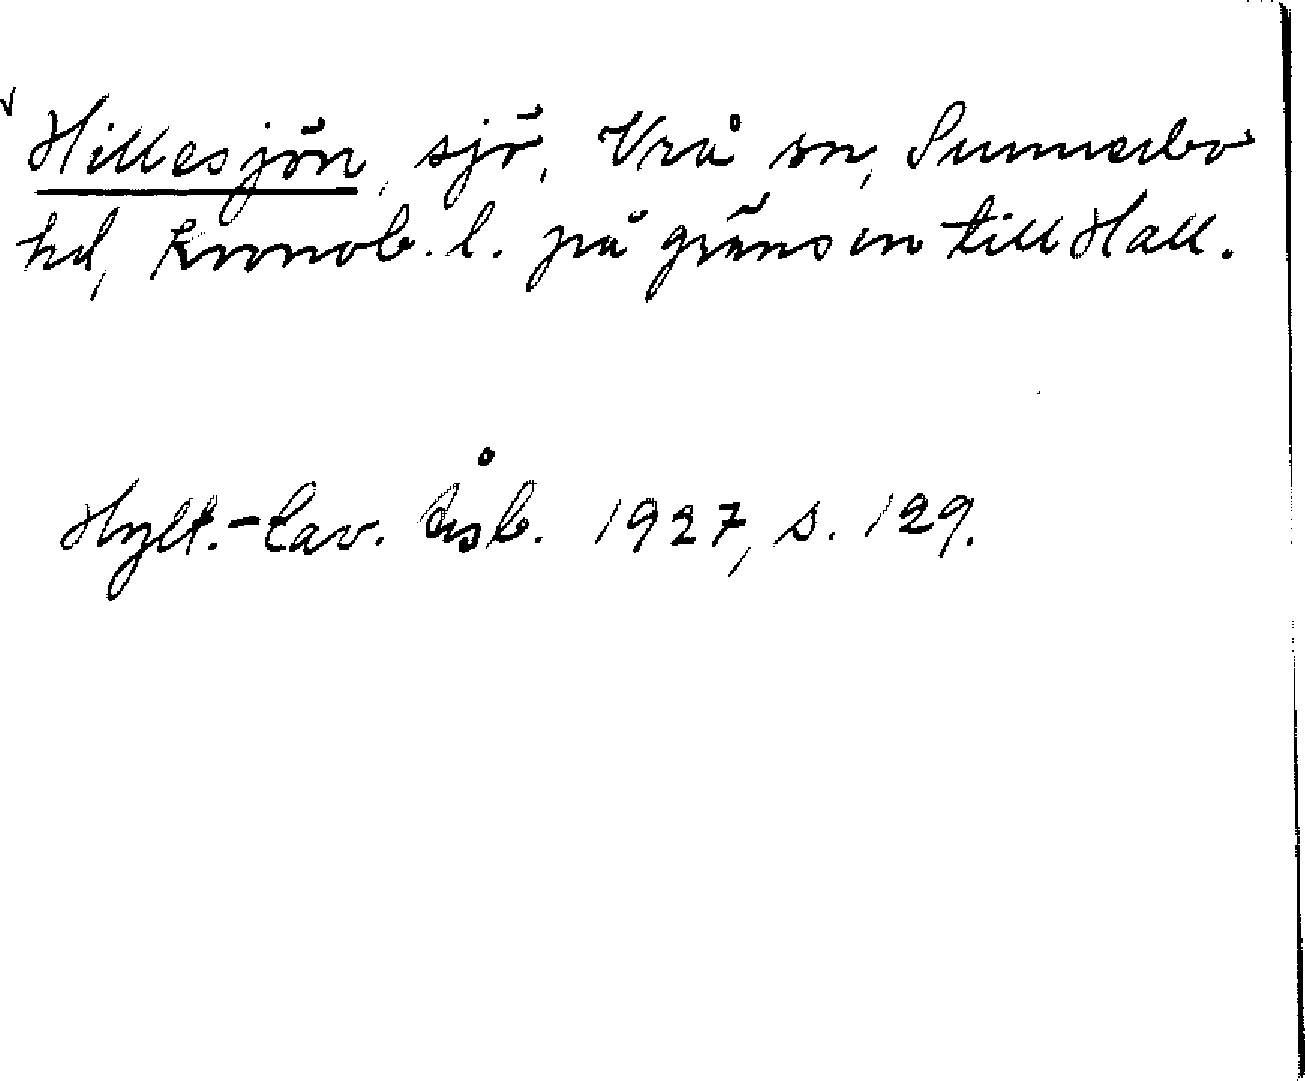 Hillesjön, sjö, Vrå sn, Sunnerbo
hd, Kronob. l. på gränsen till Hall.
Hylt.-Cav. Årsb. 1927, s. 129.